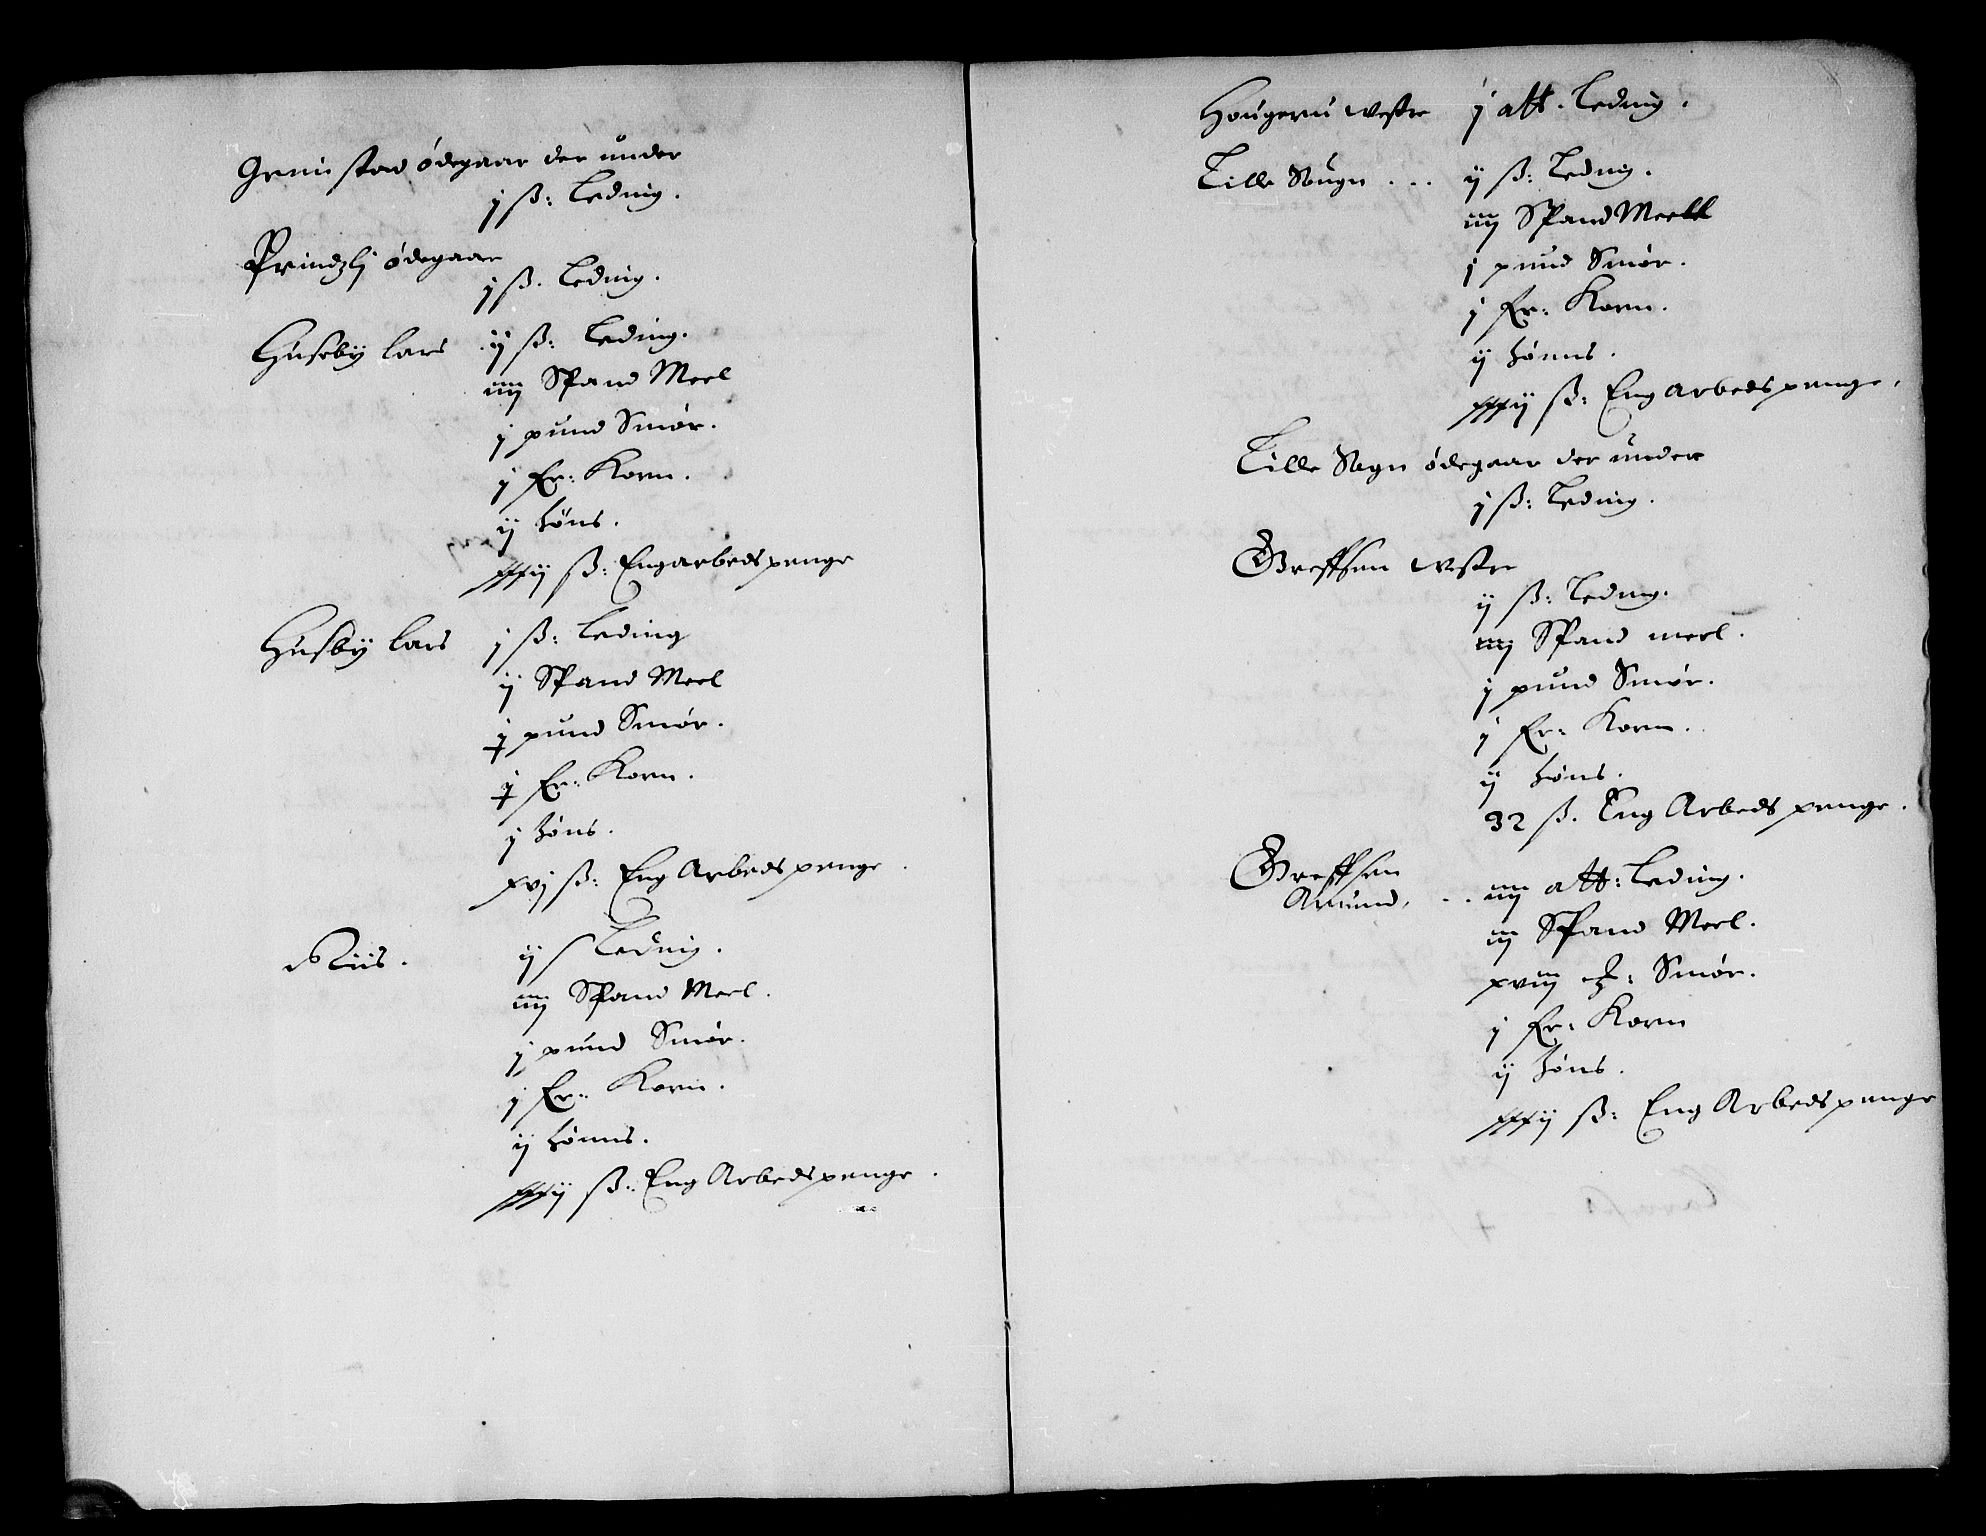 Grimstad ødegaar der under
j ß: Leding.
Prindzlj ødegaar
j ß. Leding.
Huseby Lars ij ß: Leding.
iiij Spand Meel
j pund Smør.
j fr: Korn.
ij høns.
xxxij ß: Engarbeds penge
Husby Lars j ß: Leding
ij Spand Meel
j pund Smør.
j fr: Korn.
j høns.
xvj ß: Eng Arbeds penge.
Riis. ij ß Leding.
iiij Spand Meel.
j pund Smør.
j fr: Korn.
ij hønns.
xxxij ß: Eng Arbeds penge.
Hougeru westre j att. Leding.
Lille Sougn ... ij ß: Leding.
iiij Spand Meell
j pund Smør.
j fr: Korn.
ij hønns.
xxxij ß: Eng arbeds penge.
Lille Sogn ødegaar der under
j ß: Leding.
Greffsen westre
ij ß: Leding.
iiij Spand meel.
j pund Smør.
j fr: Korn.
ij høns.
32 ß. Eng Arbeds penge.
Greffsen
Amund, .. iiij att: Leding.
iij Spand Meel.
xviij : Smør.
j fr: Korn
ij høns.
xxxij ß: Eng Arbeds penge